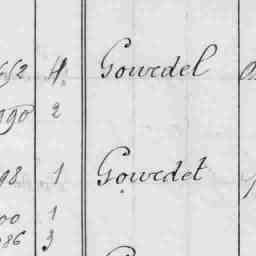 652 4. Gourdel
990 2
98 1 Gourdet
00 1
986 3